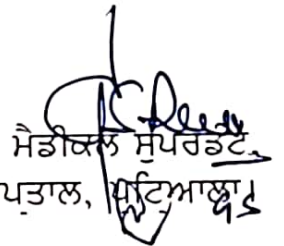 ਮੈਡੀਕਲ ਸੁਪਰਡੰਟ,
ਪਤਾਲ, ਪਟਿਆਲਾ